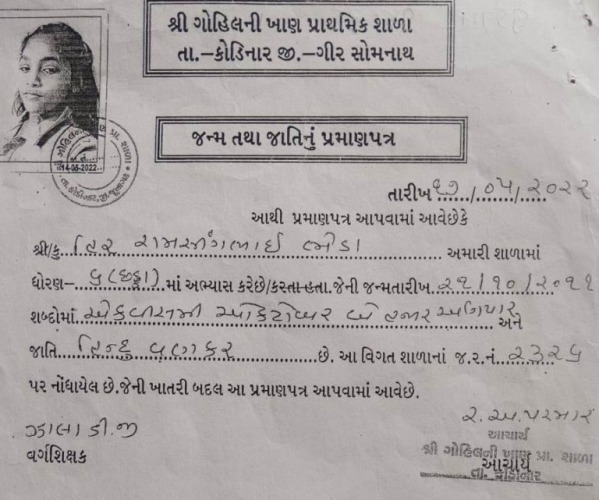 શ્રી ગોહિલની ખાણ પ્રાથમિક શાળા
તા.–કોડિનાર જી.–ગીર સોમનાથ
14-05-2022
જન્મ તથા જાતિનું પ્રમાણપત્ર
તારીખ ૧૭/૦૫/૨૦૨૨
આથી પ્રમાણપત્ર આપવામાં આવેછેકે
શ્રી/કુ. રામસીંગભાઈ અમારી શાળામાં
ધોરણ– ૬(છઠ્ઠા) માં અભ્યાસ કરેછે/કરતા હતા.જેની જન્મતારીખ ૨૧/૧૦/૨૦૧૧
શબ્દોમાં એકવીસમી ઓક્ટોબર બે હજાર અગિયાર અને
જાતિ હિન્દુ વણકર છે. આ વિગત શાળાનાં જ.ર.નં. ૨૩૨૬
પર નોંધાયેલ છે.જેની ખાતરી બદલ આ પ્રમાણપત્ર આપવામાં આવેછે.
ઝાલા ડી.જી
વર્ગશિક્ષક
ર.અ.પરમાર
આચાર્ય
શ્રી ગોહિલની ખાણ પ્રા. શાળા
આચાર્ય
તા. કોડીનાર